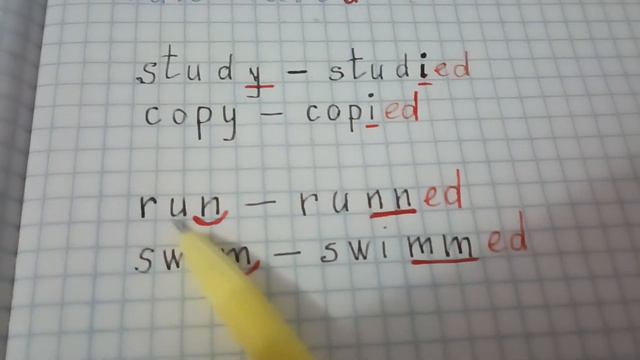 study - studied
copy - copied
run - runned
swim - swimmed